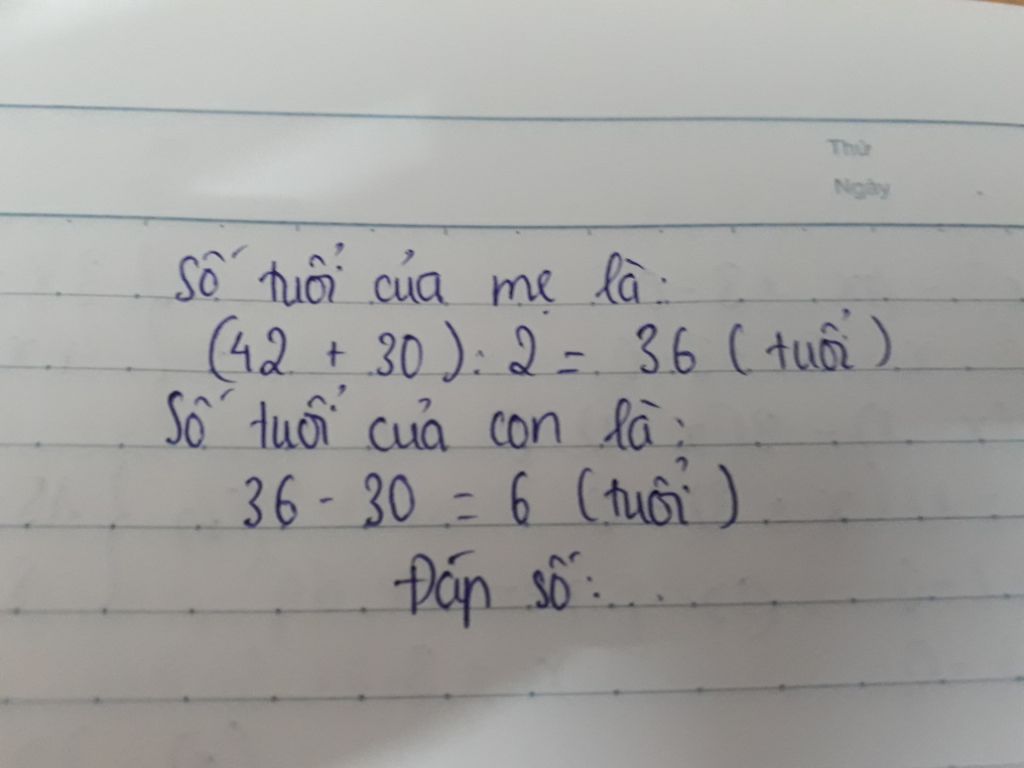 Thứ
Ngày
Số tuổi của mẹ là:
(42 + 30) : 2 = 36 (tuổi)
Số tuổi của con là:
36 - 30 = 6 (tuổi)
Đáp số:...